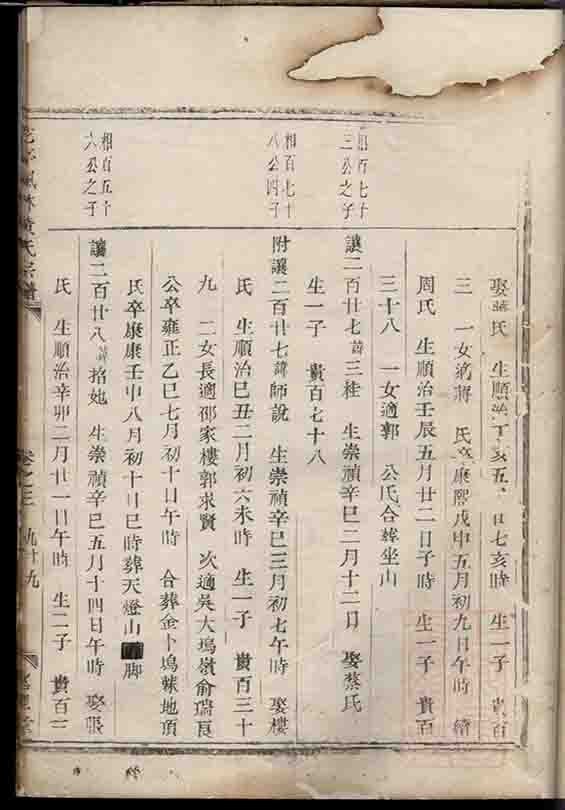 娶蔣氏 生順治丁亥五 日七亥時 生一子 貴百
三 一女適蔣 氏卒康熙戊申五月初九日午時 續
周氏 生順治壬辰五月廿二日子時 生一子 貴百
三十八 一女適郭 公氏合葬坐山
相百七十
三公之子
讓二百廿七諱三桂 生崇禎辛巳二月十二日 娶蔡氏
生一子 貴百七十八
相百七十
八公四子
附讓二百廿七諱師說 生崇禎辛巳三月初七午時 娶樓
氏 生順治巳丑二月初六未時 生一子 貴百三十
九 二女長適邵家樓郭求賢 次適吳大塢嶺俞瑞良
公卒雍正乙巳七月初十日午時 合葬金卜塢 地頂
氏卒康康壬申八月初十日巳時葬天燈山 脚
相百五十
六公之子
讓二百廿八諱 生崇禎辛巳五月十四日午時 娶張
氏 生順治辛卯二月廿一日午時 生二子 貴百三
黃氏宗譜 卷之三 九十九